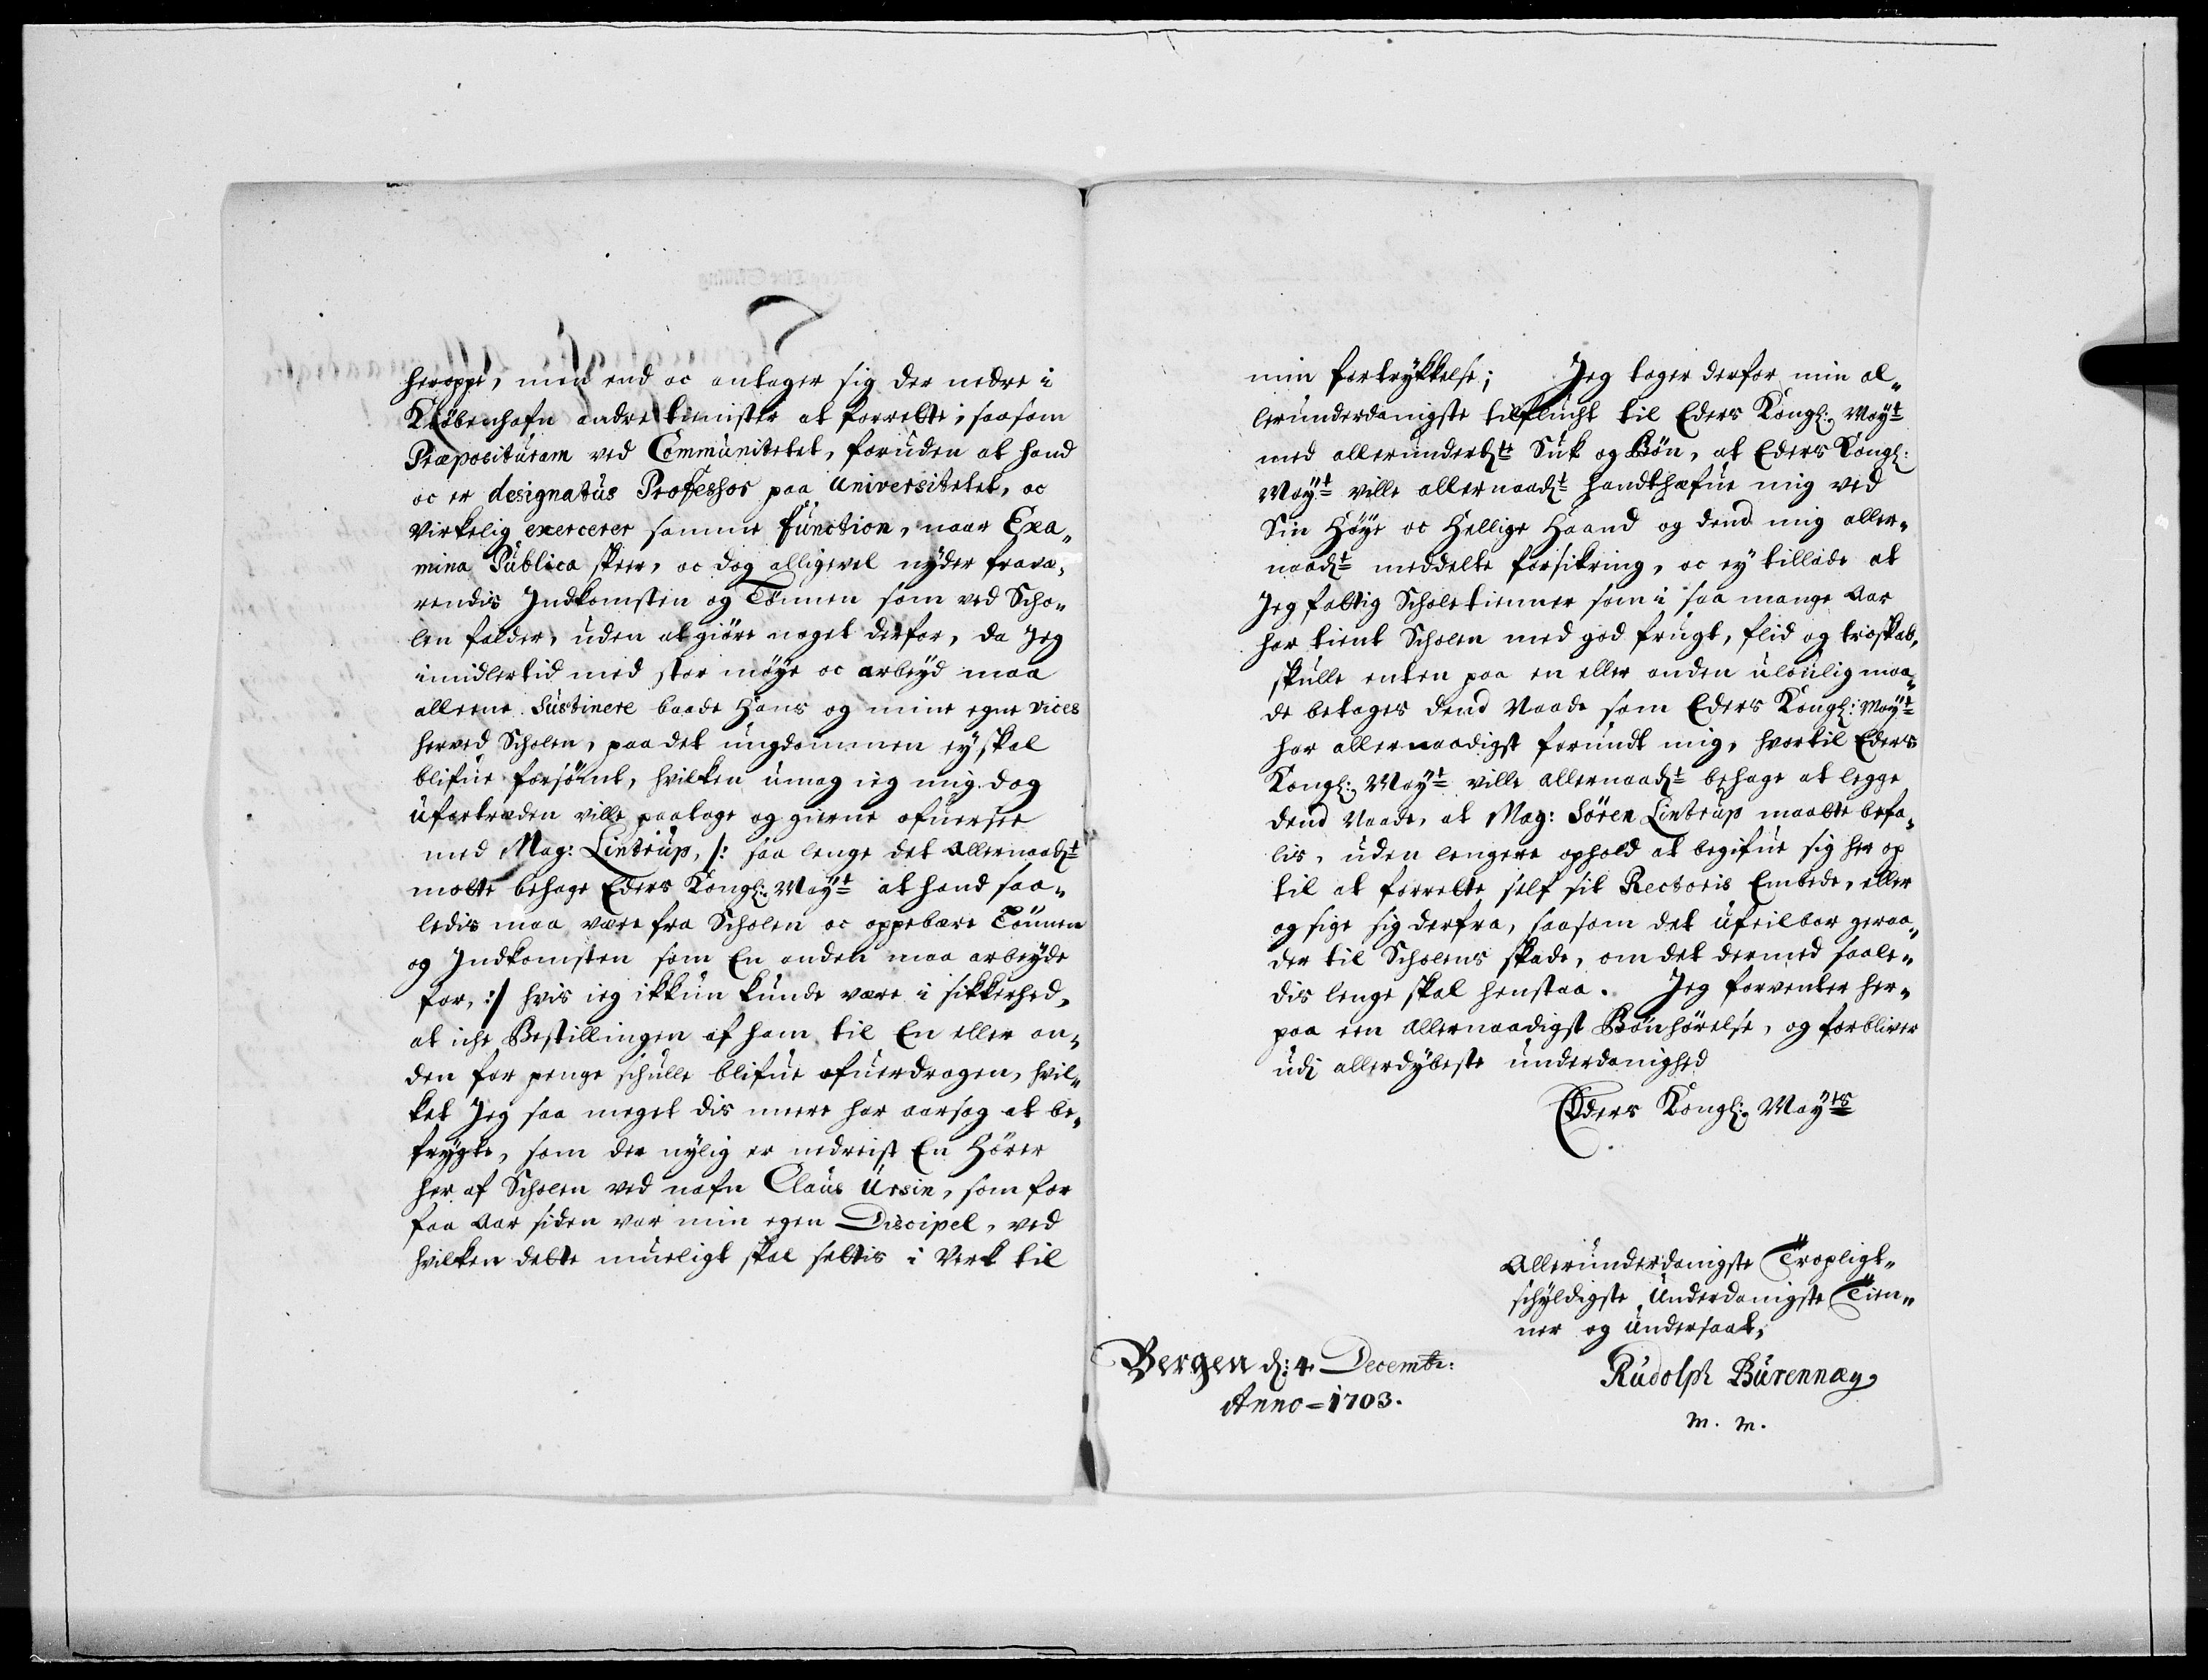 heroppe, men end oc antager sig der nedre i
Kiøbenhafn andre tienister at forrette, saasom
Præposituram ved Communitetet, foruden at hand
oc er designatus Professor paa Universitetet, oc
virkelig exercerer samme function, naar Exa„
mina Publica skeer, oc dog alligevel nyder fravæ„
rendis Indkomsten og Lönnen som ved Scho„
len falder, uden at giöre noget derfor, da Jeg
imidlertid med stor möye oc arbeyd maa
alleene Sustinere baade Hans og mine egne vices
herved Scholen, paa det ungdommen ey skal
blifue forsömt, hvilken umag ieg mig dog
ufortröden ville paatage og gierne ofuersee
med Mag: Lintrup, /: saa lenge det allernaadt
motte behage Eders Kongl: Mayt at hand saa„
ledis maa være fra Scholen oc oppebære Lönnen
og Indkomsten som En anden maa arbeyde
for, :/ hvis ieg ikkun kunde være i sikkerhed,
at iche Bestillingen af ham til En eller an„
den for penge schulle blifue ofuerdragen, hvil„
ket Jeg saa meget dis meere har aarsag at be„
frygte, som der nylig er nedreist En Hörer
her af Scholen ved nafn Claus Ursin, som for
faa Aar siden var min egen Discipel, ved
hvilken dette mueligt skal settis i Verk til
min fortrykkelse; Jeg tager derfor min al„
lerunderdanigste tilflucht til Eders Kongl: Mayt
med allerunderdt Suk og Bön, at Eders Kongl:
Mayt ville allernaadt handthæfue mig ved
Sin Höye oc Hellige Haand og dend mig aller„
naadt meddelte forsikring, oc ey tillade at
Jeg fattig Scholetienner som i saa mange Aar
har tient Scholen med god frugt, flid og troskab,
skulle enten paa en eller anden ulouligmaa„
de betages dend Naade som Eders Kongl: Mayt
har allernaadigst forundt mig, hvortil Eders
Kongl: Mayt ville allernaadt behage at legge
dend Naade, at Mag: Sören Lintrup maatte befa„
lis, uden lengere ophold at begifue sig her op
til at forrette self sit Rectoris Embede, eller
og sige sig derfra, saasom det ufeilbar geraa„
der til Scholens skade, om det dermed saale„
dis lenge skal henstaa. Jeg forventer her„
paa een allernaadigst Bönhörelse, og forbliver
udi allerdybeste underdanighed
Eders Kongl: Mayts
Allerunderdanigste Tropligt„
schyldigste Underdanigste Tien„
ner og Undersaat,
Bergen d: 4 Decembr:
Anno = 1703.
Rudolph Burennæy
m. m.